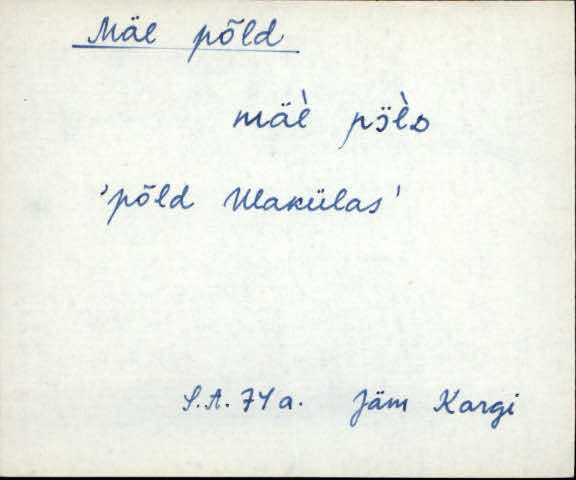 Mäe põld
mäè pö̀lᴅ
'põld Ulakülas'
S.A. 74a. Jäm Kargi